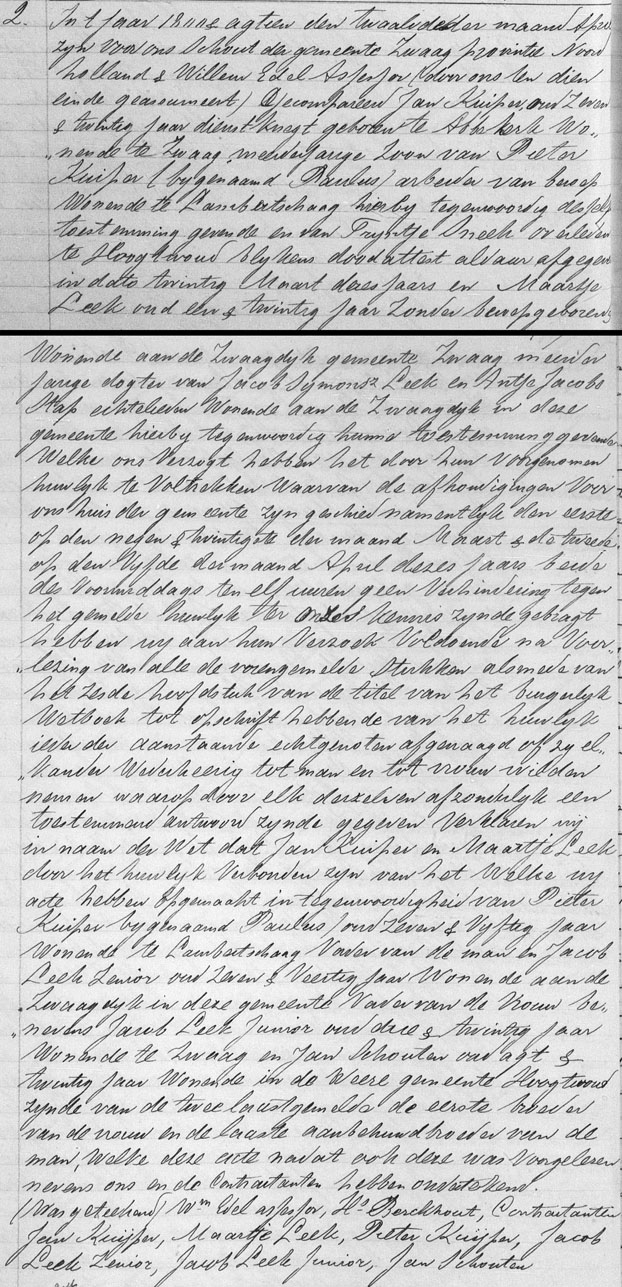 2. In t jaar 18 & agtien den twaalvde der maand April
zyn voor ons Schout der gemeente Zwaag provintie Noord
holland & Willem Edel Assessor (door ons ten dien
einde geassumeert) Gecompareerd Jan Kuijper, oud Zeven
& twintig jaar dienstknegt geboren te Wo„
„nende te Zwaag, meerderjarige Zoon van Pieter
Kuijper (bygenaamd Paulus) arbeider van beroep
Wonende te Lambertschaag hierby tegenwoordig deszelfs
toestemming gevende en van Tryntje Sneek overleden
te Hoogtwoud blykens dood attest aldaar afgegeven
in dato twintig Maart dezes jaars en Maartje
Leek oud een & twintig jaar Zonder beroep geboren &
Wonende aan de Zwaagdyk gemeente Zwaag meerder
jarige dogter van Jacob Symonsz Leek en Antje Jacobs
Stap echtelieden Wonende aan de Zwaagdyk in deze
gemeente hierby tegenwoordig hunne toestemming gevende
Welke ons Verzogt hebben het door hun Voorgenomen
huwlyk te Voltrekken Waarvan de afkondigingen Voor
ons huis der gemeente zyn geschied namentlyk den eerste
op den negen & twintigste der maand Maart & de tweede
op den Vyfde der maand April dezes jaars beide
des Voormiddags ten elf uuren geen Verhindering tegen
het gemelde huwlyk ter onzes kennis zynde gebragt
hebben wy aan hun Verzoek Voldoende na Voor„
„lezing van alle de vorengemelde Stukken alsmede van
het Zesde hoofdstuk van de titel van het burgerlyk
Wetboek tot opschrift hebbende van het huwlyk
ieder der aanstaande echtgenoten afgevraagd of zy el„
„kander Wederkeerig tot man en tot vrouw wilden
nemen waarop door elk derzelven afzonderlyk een
toestemmend antwoord zynde gegeven Verklaren wy
in naam der Wet dat Jan Kuijper en Maartje Leek
door het huwlyk Verbonden zyn van het Welke wy
acte hebben Opgemaakt in tegenwoordigheid van Pieter
Kuijper bygenaamd Paulus) oud Zeven & Vyftig jaar
Wonende te Lambertschaag Vader van de man en Jacob
Leek Senior oud Zeven & Veertig jaar Wonende aan de
Zwaagdyk in deze gemeente Vader van de Vrouw be„
„nevens Jacob Leek Junior oud drie & twintig jaar
Wonende te Zwaag en Jan Schouten oud agt &
twintig jaar Wonende in de Weere gemeente Hoogtwoud
zynde van de twee laastgemelde de eerste broeder
van de vrouw en de laaste aanbehuwdbroeder van de
man, Welke deze acte nadat ook deze was Voorgelezen
nevens ons en de Contractanten hebben ondertekend.
(Was geteekend) Wm Edel assessor, Hs Berckhout, Contractanten
Jan Kuijper, Maartje Leek, Pieter Kuijper, Jacob
Leek Senior, Jacob Leek Junior, Jan Schouten